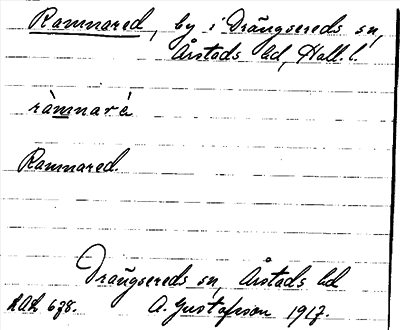 Ramnared, by i Drängsereds sn,
Årstads hd, Hall. l.
ràmnaré
Ramnared.
Drängsereds sn, Årstads hd
A. Gustafsson 1917.